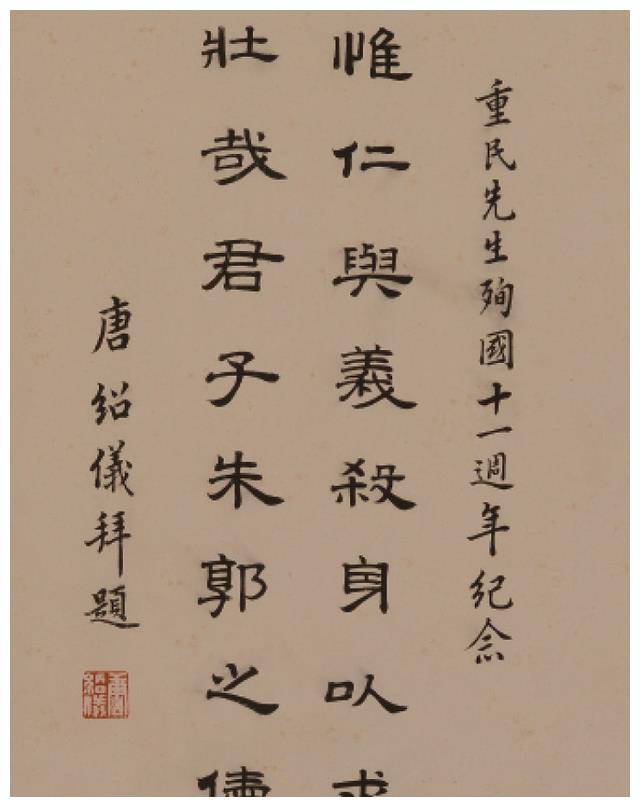 重民先生殉國十一週年紀念
惟仁與義殺身以求
壯哉君子朱郭之儔
唐紹儀拜題
唐紹儀